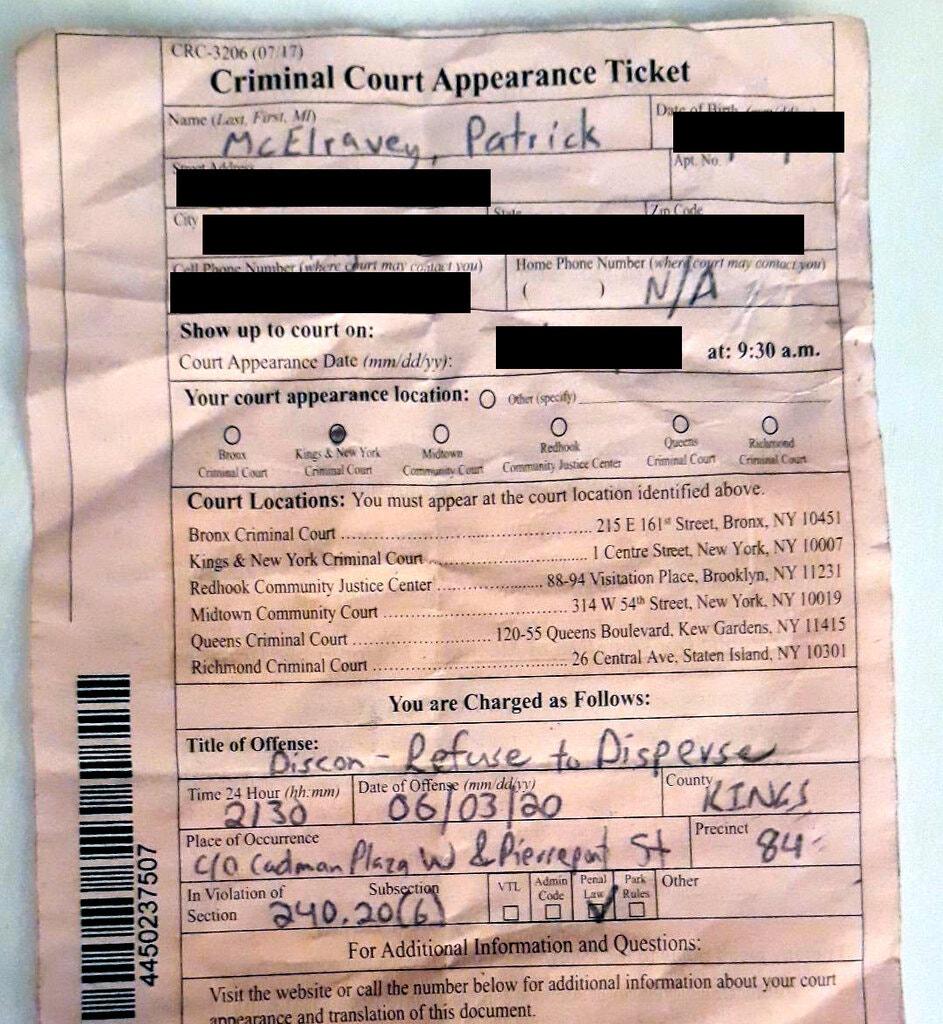 CRC-3206 (07/17)
Criminal Court Appearance Ticket
Name (Last, First, MI)
Date of Birth
McElravey, Patrick
Street Address
Apt. No.
City
State
Zip Code
Cell Phone Number (where court may contact you)
Home Phone Number (where court may contact you)
( ) N/A
Show up to court on:
Court Appearance Date (mm/dd/yy):
at: 9:30 a.m.
Your court appearance location: Other (specify)
Bronx Criminal Court
Kings & New York Criminal Court
Midtown Community Court
Redhook Community Justice Center
Queens Criminal Court
Richmond Criminal Court
Court Locations: You must appear at the court location identified above.
Bronx Criminal Court ........ 215 E 161st Street, Bronx, NY 10451
Kings & New York Criminal Court ........ 1 Centre Street, New York, NY 10007
Redhook Community Justice Center ........ 88-94 Visitation Place, Brooklyn, NY 11231
Midtown Community Court ........ 314 W 54th Street, New York, NY 10019
Queens Criminal Court ........ 120-55 Queens Boulevard, Kew Gardens, NY 11415
Richmond Criminal Court ........ 26 Central Ave, Staten Island, NY 10301
You are Charged as Follows:
Title of Offense:
Discon - Refuse to Disperse
Time 24 Hour (hh:mm)
2130
Date of Offense (mm/dd/yy)
06/03/20
County
KINGS
Place of Occurrence
C/O Cadman Plaza W & Pierrepont St
Precinct
84
In Violation of Section
Subsection
240.20(6)
VTL
Admin Code
Penal Law
Park Rules
Other
For Additional Information and Questions:
Visit the website or call the number below for additional information about your court
appearance and translation of this document.
4450237507